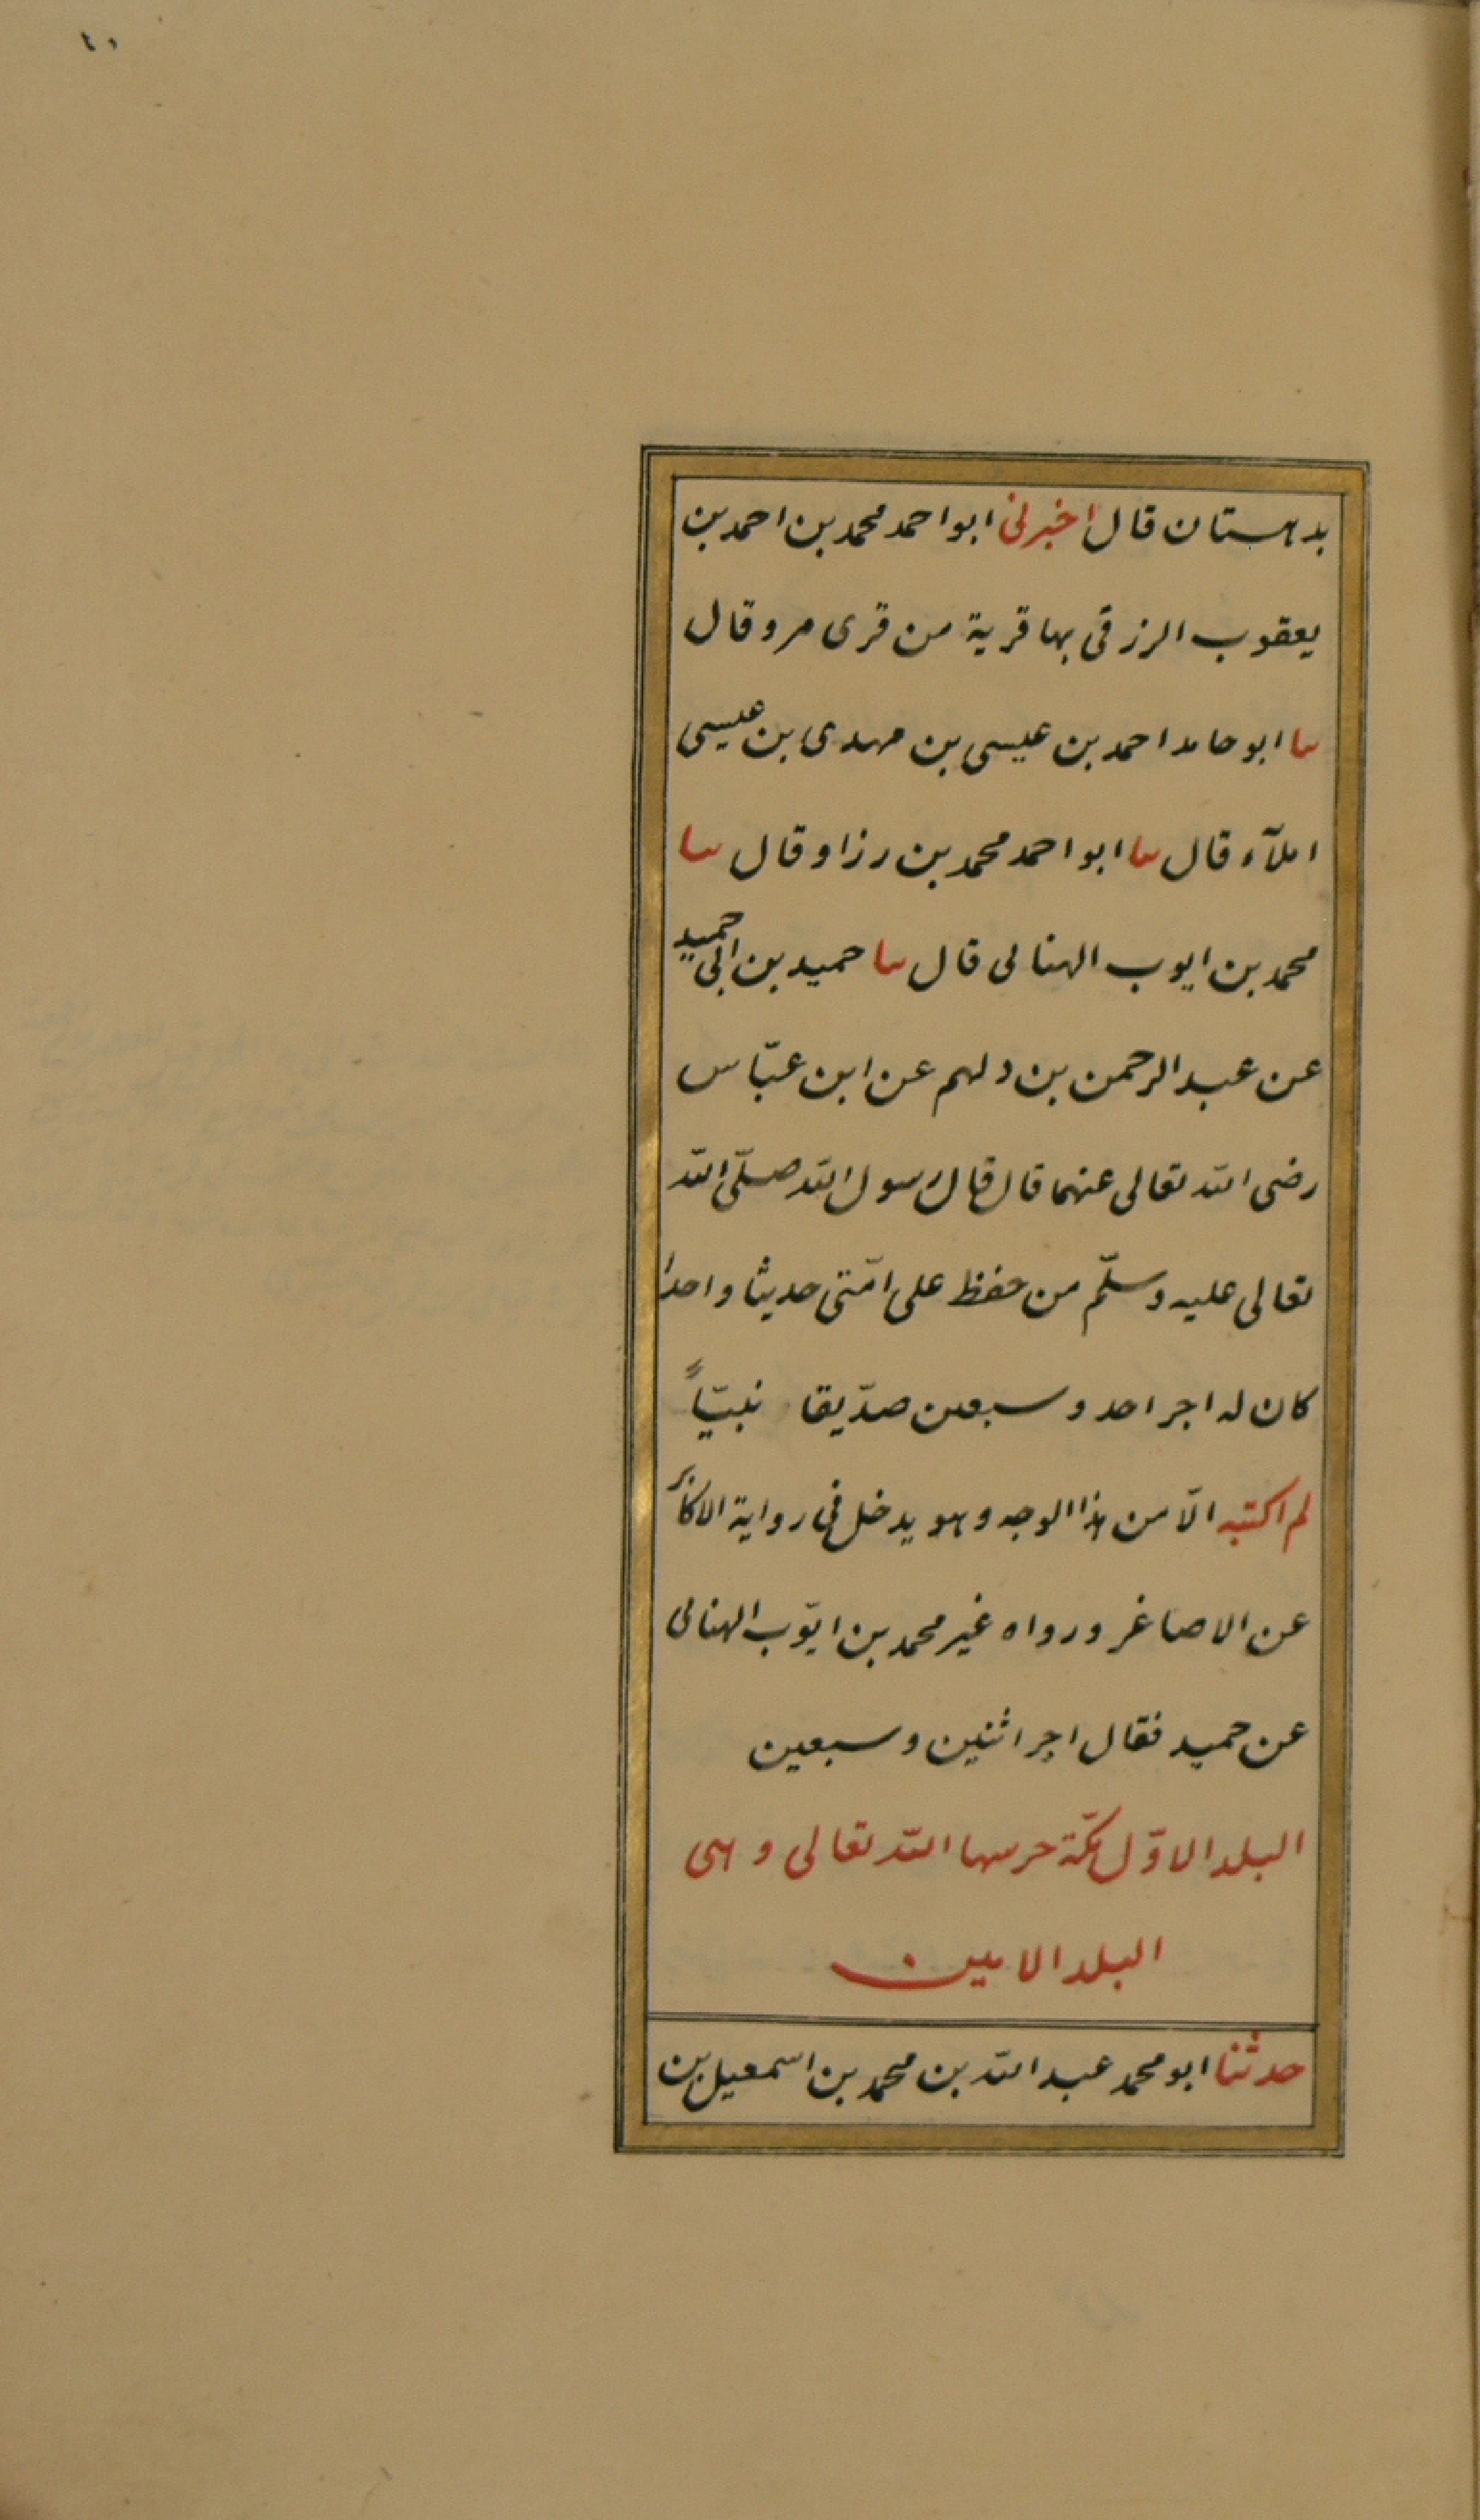 بدهستان قال اخبرنى ابو احمد محمد بن احمد بن
يعقوب الرزقى بها قرية من قرى مرو قال
ىىا ابو حامد احمد بن عيسى بن مهدى بن عيسى
املآء قال ىىا ابو احمد محمد بن رزاو قال ىىا
محمد بن ايوب الهنالى قال ىىا حميد بن ابى حميد
عن عبد الرحمن بن دلهم عن ابن عبّاس
رضى الله تعالى عنهما قال قال رسول الله صلّى الله
تعالى عليه وسلّم من حفظ على امّتى حديثا واحدا
كان له اجر احد وسبعين صدّيقا نبيّاً
لم اكتبه الّا من هذا الوجه وهو يدخل فى رواية الاكابر
عن الاصاغر ورواه غير محمد بن ايّوب الهنالى
عن حميد فقال اجر اثنين وسبعين
البلد الاوّل مكّة حرسها الله تعالى وهى
البلد الامين
حدثنا ابو محمد عبد الله بن محمد بن اسمعيل بن